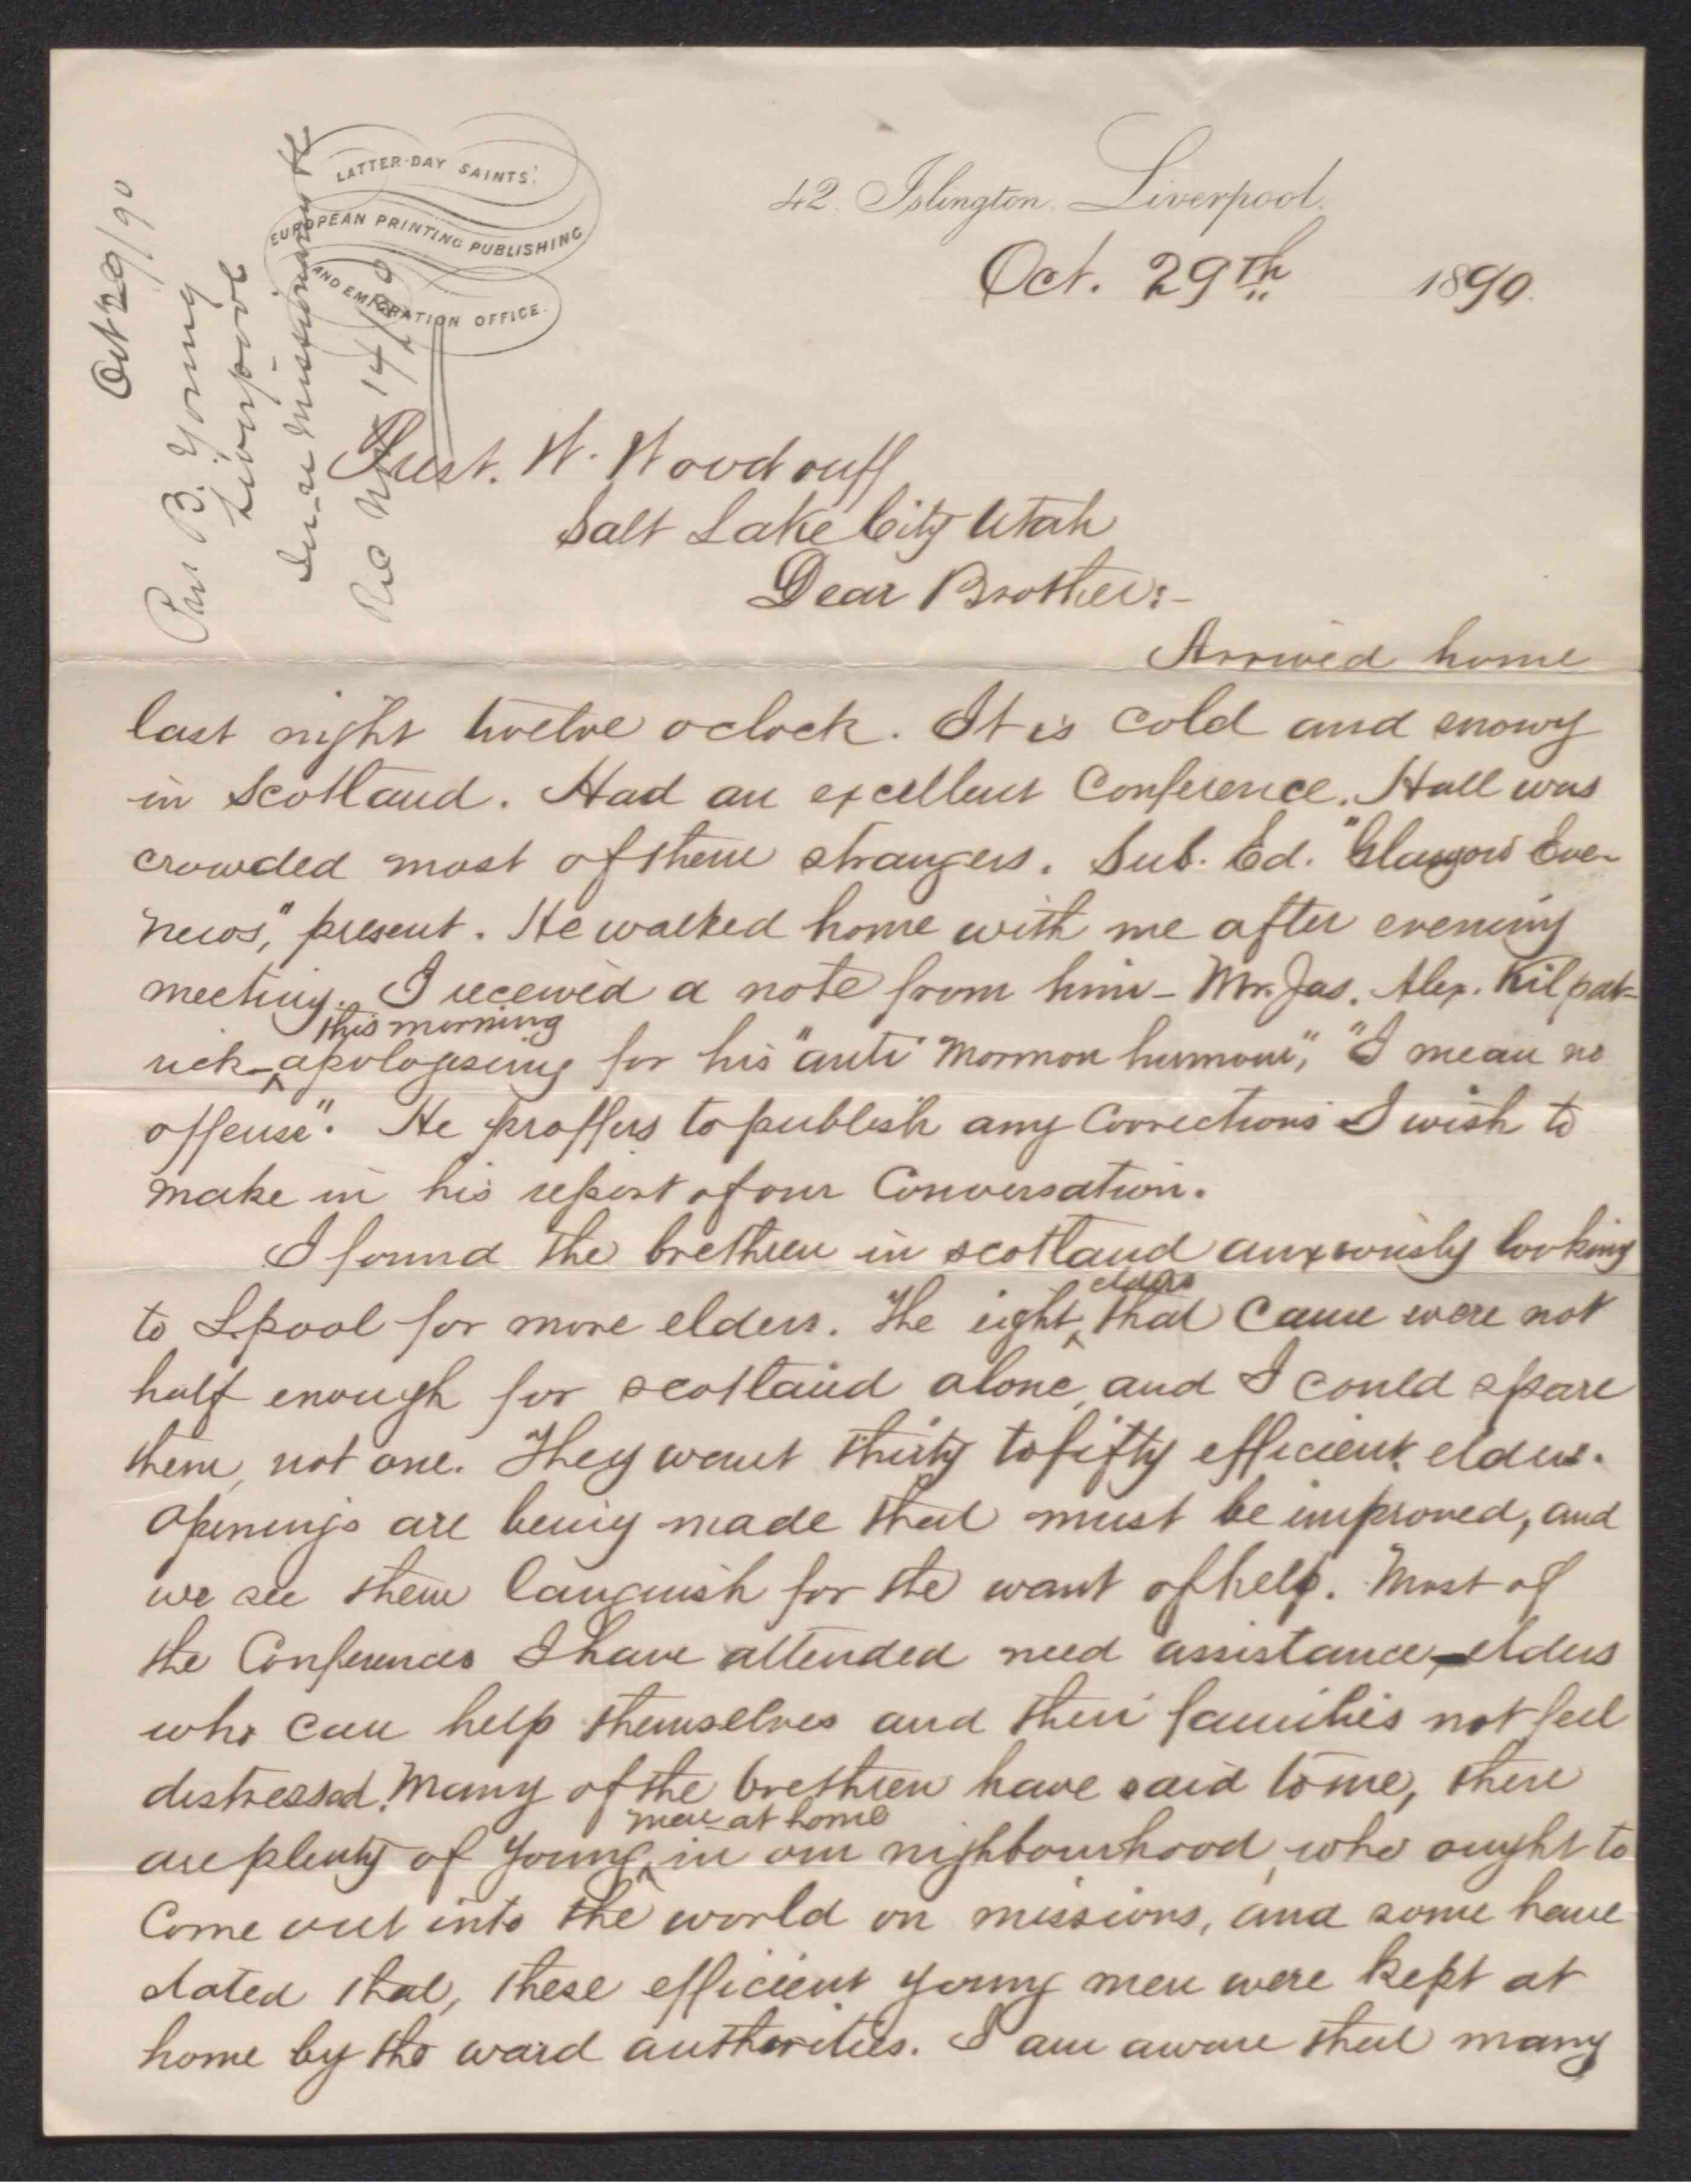 LATTER-DAY SAINTS'
EUROPEAN PRINTING PUBLISHING
AND EMIGRATION OFFICE.
42. Islington. Liverpool.
Oct. 29th 1890.
Oct 29/90
B. Young
Liverpool
Missionary
Rec Nov 14/90
Prest. W. Woodruff
Salt Lake City Utah
Dear Brother:-
Arrived home
last night twelve oclock. It is cold and snowy
in Scotland. Had an excellent Conference. Hall was
crowded most of them strangers. Sub. Ed. "Glasgow Eve-
news," present. He walked home with me after evening
meeting. I received a note from him - Mr. Jas. Alex. Kilpat-
this morning
rick - apologising for his "anti Mormon humour," "I mean no
offense". He proffers to publish any Corrections I wish to
make in his report of our Conversation.
I found the brethren in scotland anxiously looking
elders
to L.pool for more elders. The eight that came were not
half enough for scotland alone, and I could spare
them, not one. They want thirty to fifty efficient elders.
Openings are being made that must be improved, and
we see them languish for the want of help. Most of
the Conferences I have attended need assistance, elders
who can help themselves and their families not feel
distressed. Many of the brethren have said to me, there
men at home
are plenty of young in our nighbourhood, who ought to
Come out into the world on missions, and some have
stated that, these efficient young men were kept at
home by the ward authorities. I am aware that many